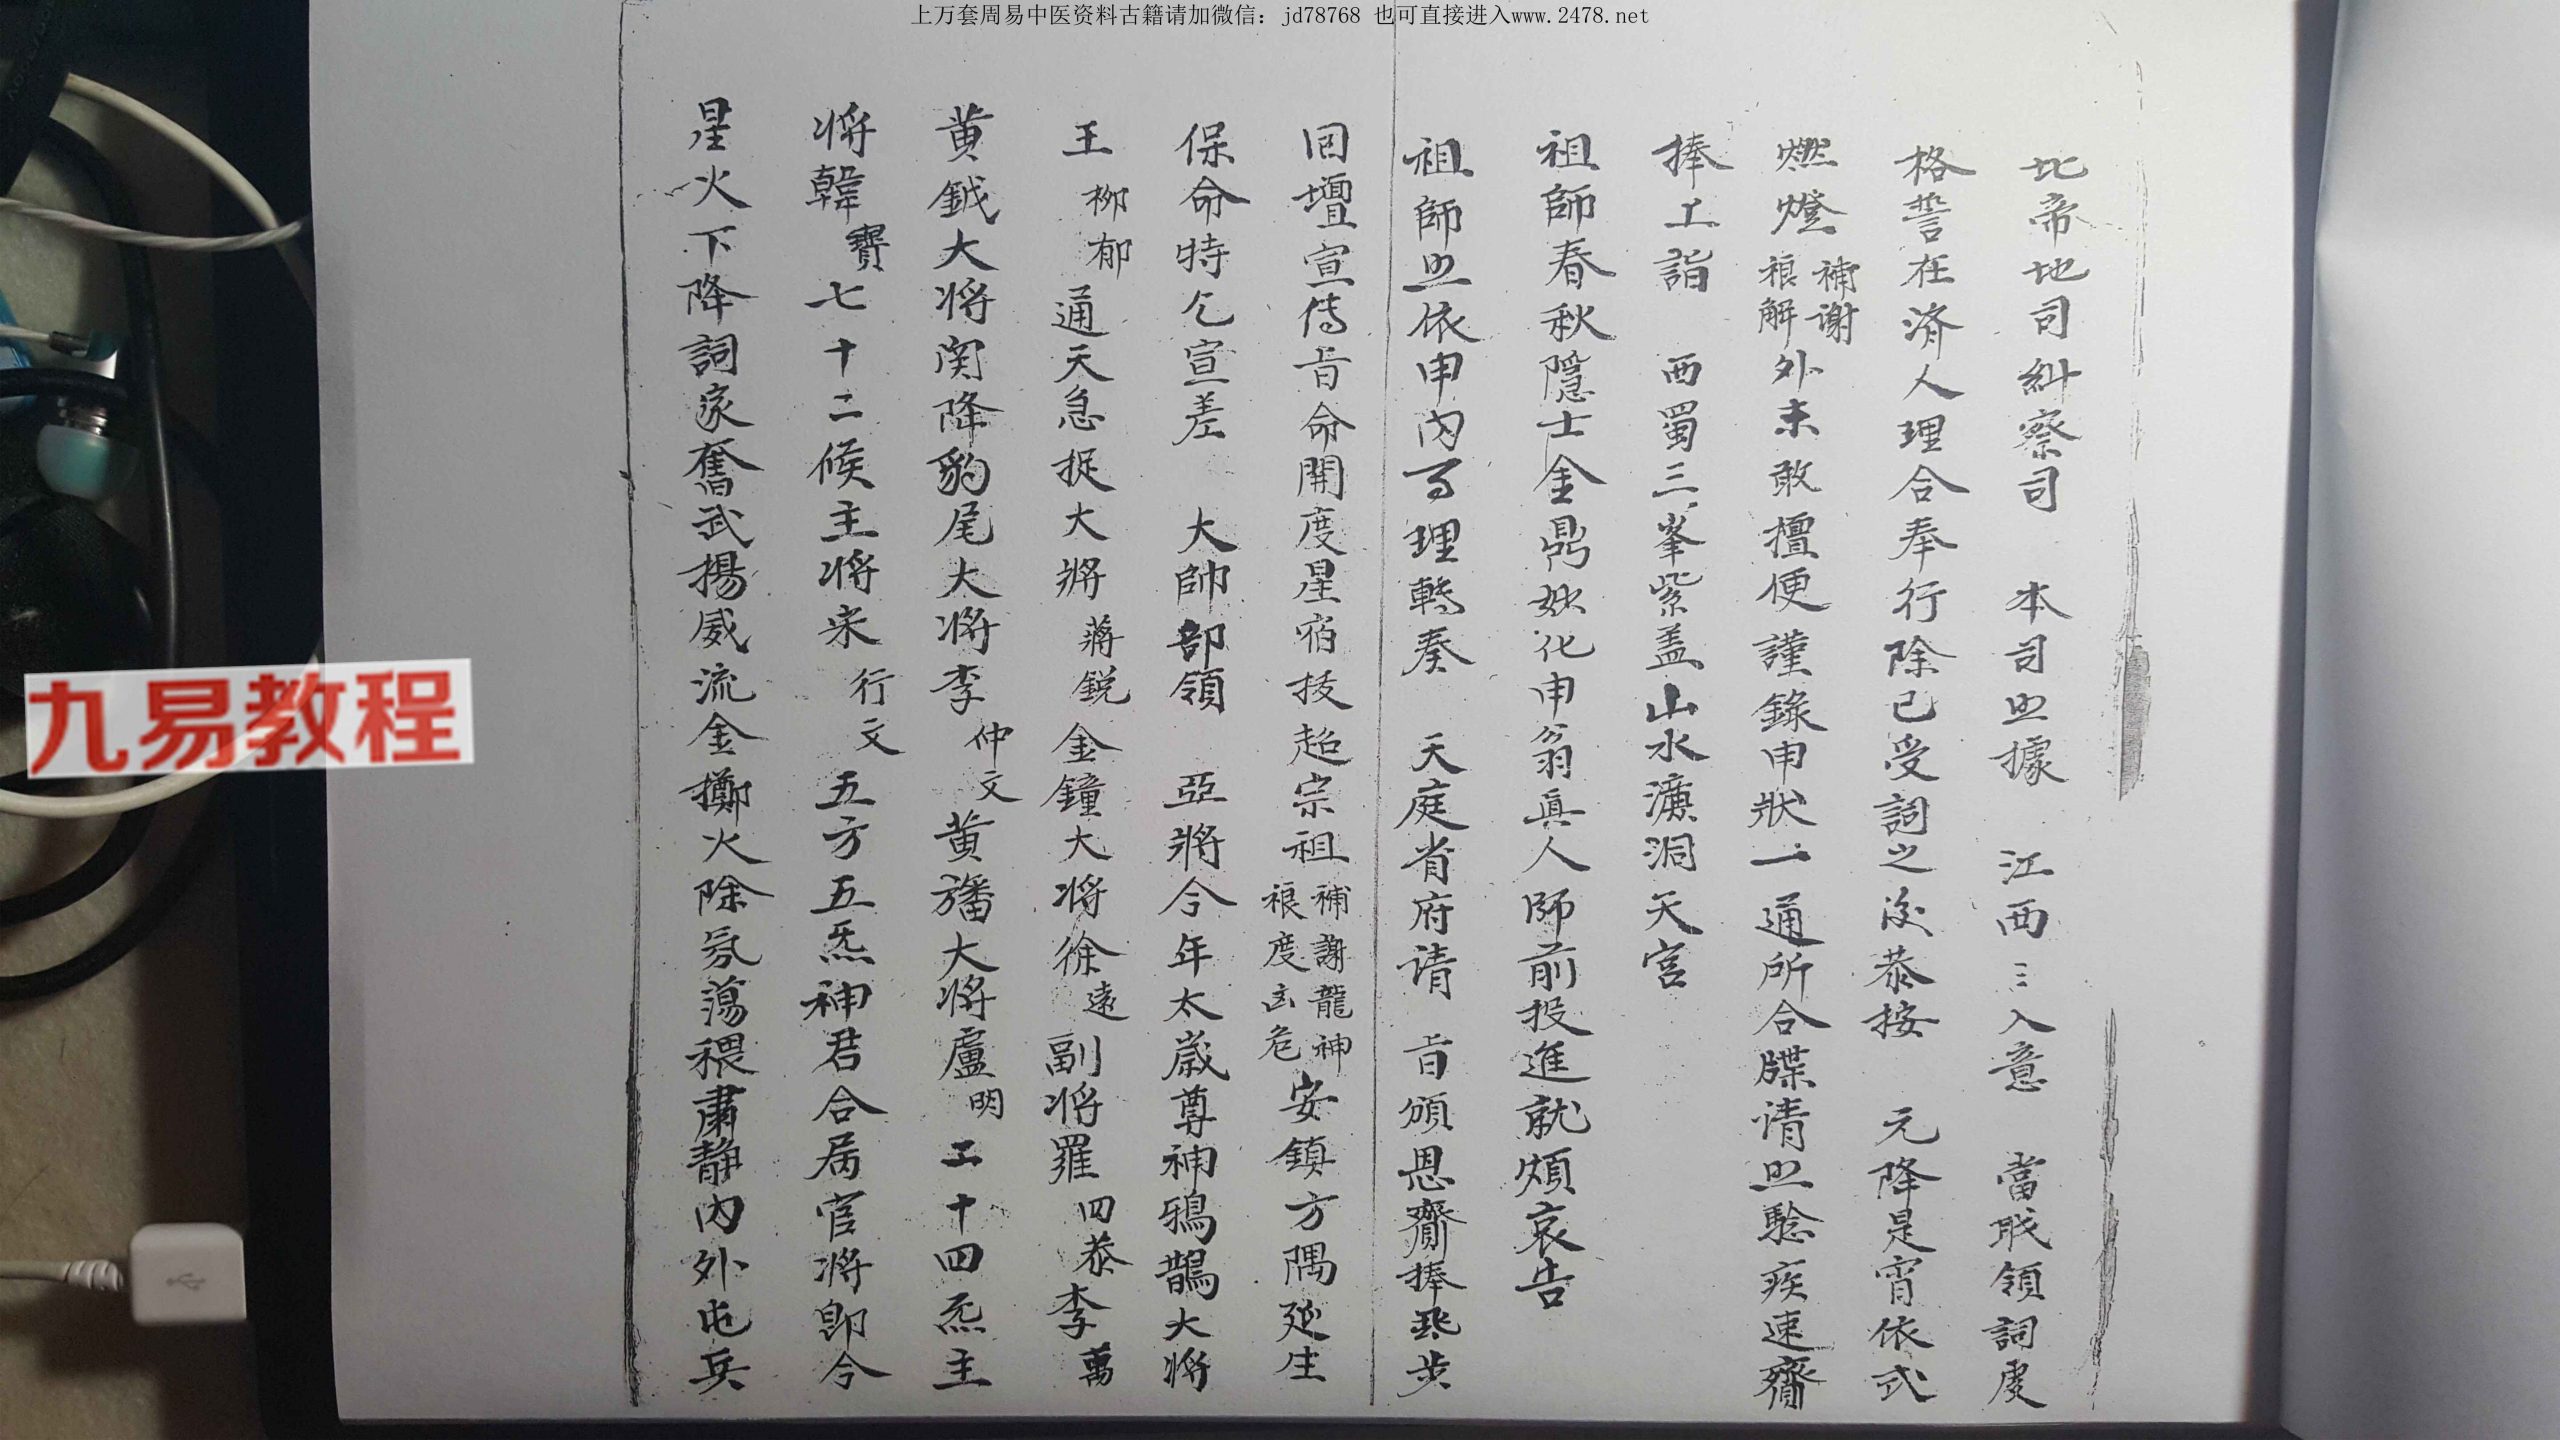 上万套周易中医资料古籍请加微信：jd78768 也可直接进入www.2478.net
北帝地司糾察司 本司照據 江西 入意 當職領詞虔
格誓在济人理合奉行除已受詞之後恭按 元降是宵依式
燃燈補謝禳解外未敢擅便謹錄申状一通所合牒请照驗疾速齎
捧上詣 西蜀三峯紫盖山水濂洞天宫
祖師春秋隱士金鼎妙化申翁真人師前投進就煩哀告
祖師照依申内事理轉奏 天庭省府请 旨頒恩齎捧飛步
回壇宣傳旨命開度星宿拔超宗祖補謝龍神禳度凶危安鎮方隅延生
保命特乞宣差 大帥部領 亞將今年太歲尊神鴉鵲大将
王柳郁通天急捉大將蔣鋭金鐘大将徐遠副将羅四泰李萬
黄鉞大将関降豹尾大将李仲文黄旛大将盧明二十四炁主
将韓寶七十二候主将宋行文五方五炁神君合属官将即今
星火下降詞家奮武揚威流金擲火除氛蕩穢肅静内外屯兵
九易教程